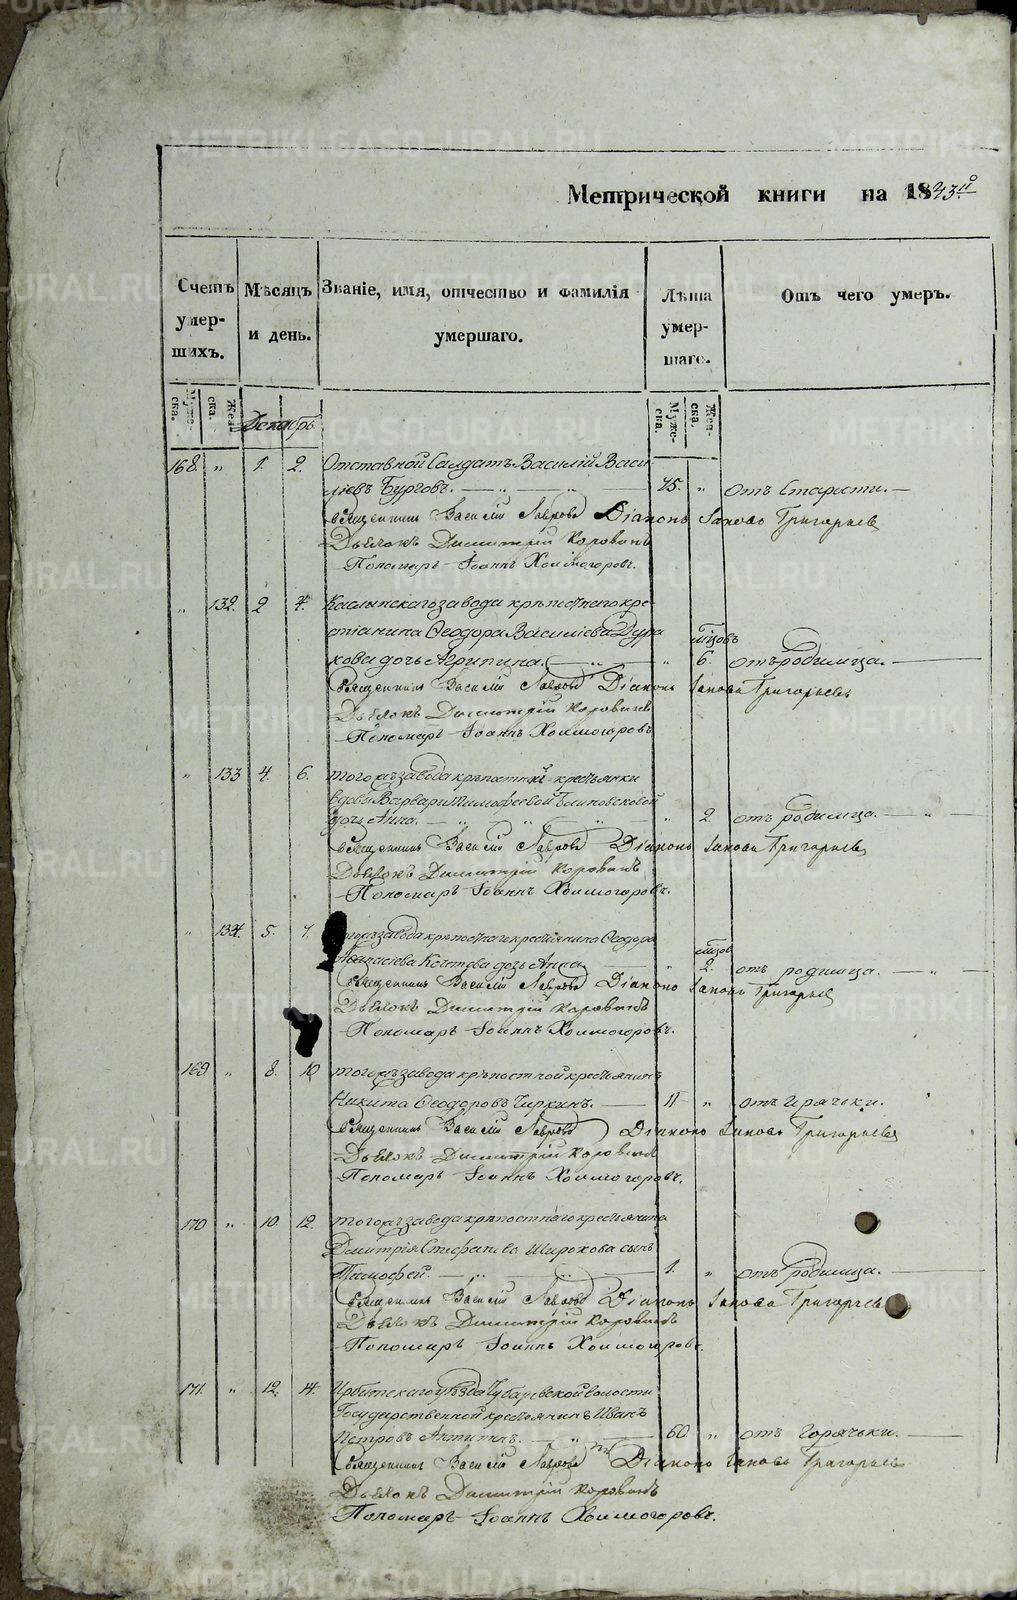 Метрической книги на 1843й
Счетъ умершихъ.
Мѣсяцъ и день.
Званіе, имя, отчество и фамилія умершаго.
Лѣта умершаго.
Отъ чего умеръ.
Мужеска. Женска. Декабрь Мужеска. Женска.
168. " 1. 2. Отставной Солдатъ Василій Васи
лiевъ Бурговъ. 75. " отъ Старости.
Священникъ Василій Лавровъ Діаконъ Іаковъ Григорьевъ
Дьячокъ Димитрій Коровинъ
Пономарь Іоаннъ Холмогоровъ.
" 132. 2 4. Каслинскаго завода крѣпостнаго кре
стіанина Ѳеодора Василіева Дура мѣсцовъ
кова дочь Агрипина. " 6. отъ родимца.
Священникъ Василій Лавровъ Діаконъ Іаковъ Григорьевъ
Дьячокъ Димитрій Коровинъ
Пономарь Іоаннъ Холмогоровъ
" 133 4. 6. того жъ завода крѣпостной крестьянки
вдовы Варвары Тимофеевой
дочь Анна. " 2. отъ родимца.
Священникъ Василій Лавровъ Діаконъ Іаковъ Григорьевъ
Дьячокъ Димитрій Коровинъ
Пономарь Іоаннъ Холмогоровъ.
" 134. 5. 7. того жъ завода крѣпостнаго крестьянина Ѳеодора мѣсцов
дочь Анна. " 2. отъ родимца.
Священникъ Василій Лавровъ Діаконъ Іаковъ Григорьевъ
Дьячокъ Димитрій Коровинъ
Пономарь Іоаннъ Холмогоровъ.
169 " 8. 10 того жъ завода крѣпостной крестьянинъ
Никита Ѳеодоровъ Чиркинъ. 11 " отъ Горячки.
Священникъ Василій Лавровъ Діаконъ Іаковъ Григорьевъ
Дьячокъ Димитрій Коровинъ
Пономарь Іоаннъ Холмогоровъ.
170 " 10. 12. того жъ завода крѣпостнаго крестьянина
Дмитрія Стефанова Широкова сынъ
Тимофей. 1. " отъ Родимца.
Священникъ Василій Лавровъ Діаконъ Іаковъ Григорьевъ
Дьячокъ Димитрій Коровинъ
Пономарь Іоаннъ Холмогоровъ.
171. " 12. 14. Ирбитскаго уѣзда Чубаровской волости
Государственной крестьянинъ Иванъ
Петровъ 60 " отъ горячки.
Священникъ Василій Лавровъ Діаконъ Іаковъ Григорьевъ
Дьячокъ Димитрій Коровинъ
Пономарь Іоаннъ Холмогоровъ.
METRIKI.GASO-URAL.RU